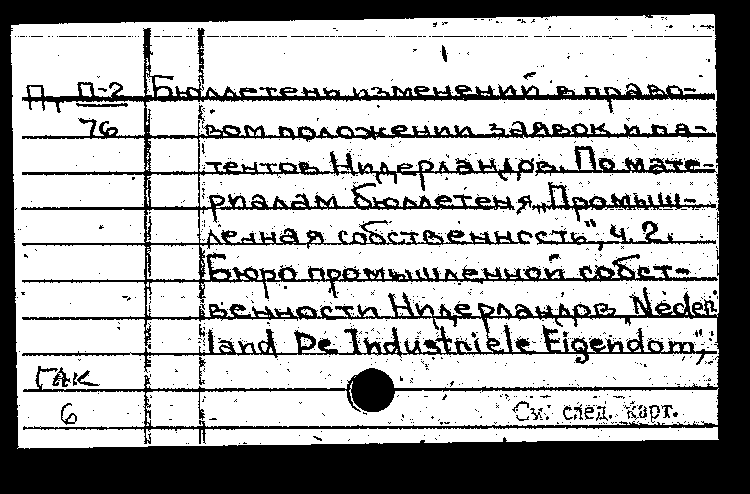 П, П-2 Бюллетень изменений в право-
76 вом положении заявок и па-
тентов Нидерландов. По мате-
риалам бюллетеня „Промыш-
ленная собственность", ч. 2.
Бюро промышленной собст-
венности Нидерландов „Neder
land De Industriele Eigendom",
ГАК
6 См. след. карт.